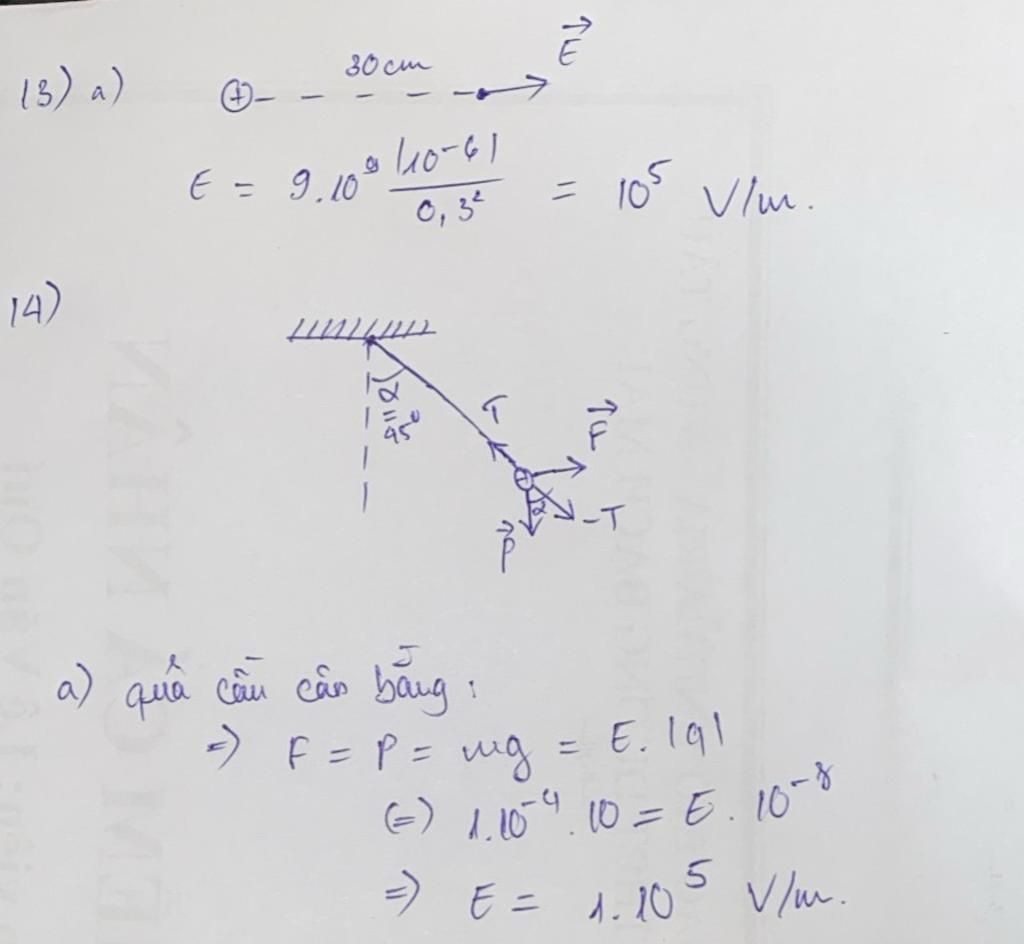 13) a)
30cm
E
+
E = 9.10⁹ |10-6| / 0,3² = 10⁵ V/m.
14)
α
=
45⁰
T
F
+
α
-T
P
a) quả cầu cân bằng :
=> F = P = mg = E. |q|
(=) 1.10⁻⁴. 10 = E. 10⁻⁸
=> E = 1.10⁵ V/m.